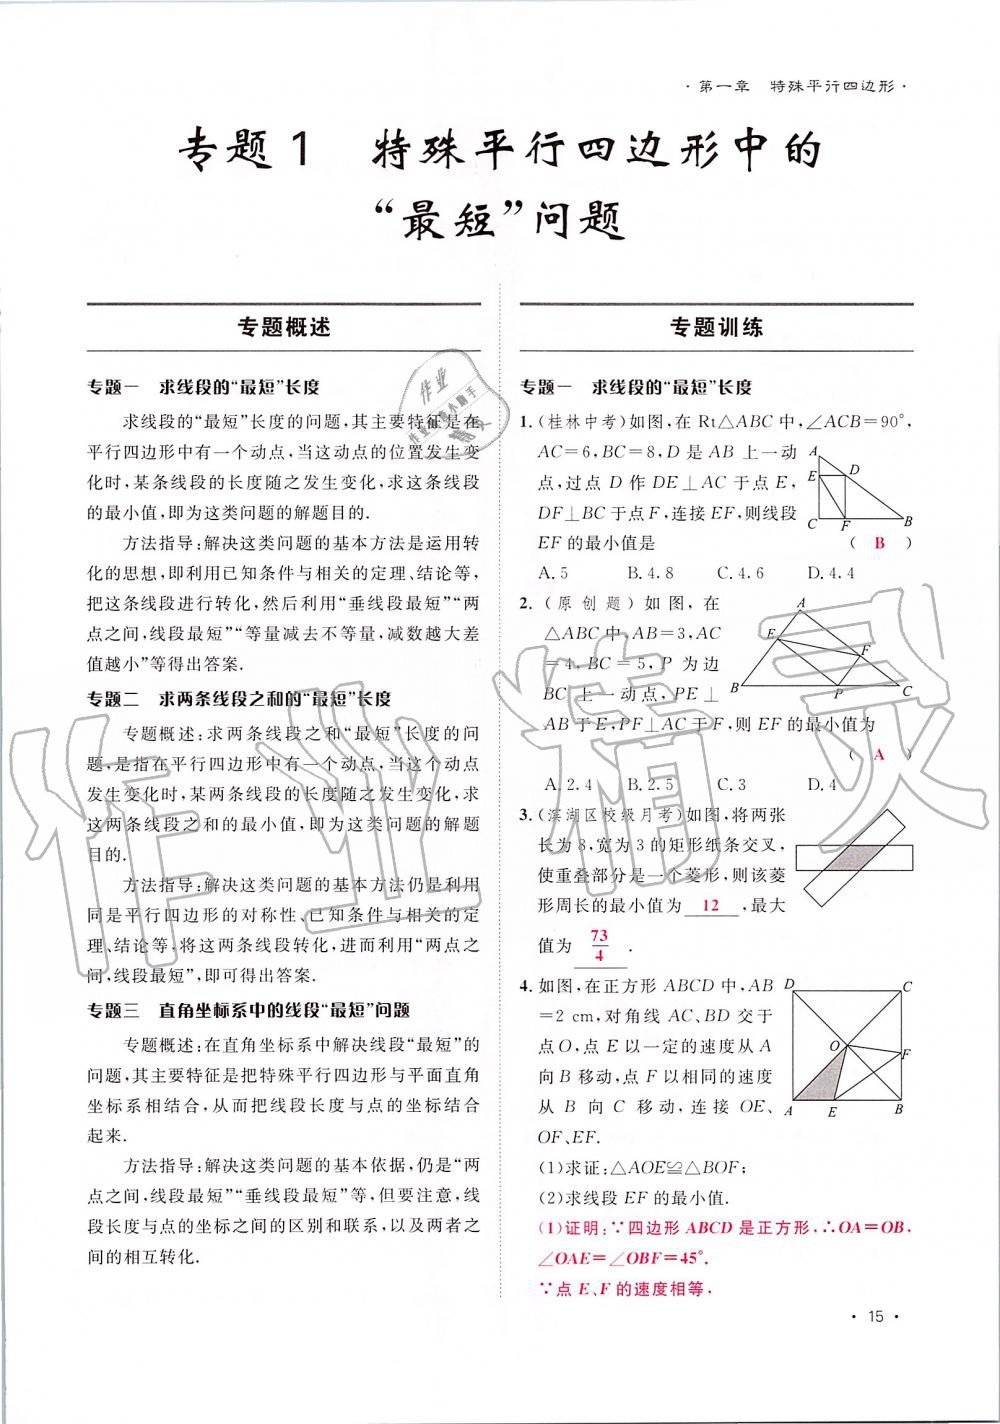 ·第一章 特殊平行四边形·
专题1 特殊平行四边形中的
“最短”问题
专题概述
专题一 求线段的“最短”长度
求线段的“最短”长度的问题,其主要特征是在
平行四边形中有一个动点,当这动点的位置发生变
化时,某条线段的长度随之发生变化,求这条线段
的最小值,即为这类问题的解题目的.
方法指导:解决这类问题的基本方法是运用转
化的思想,即利用已知条件与相关的定理、结论等,
把这条线段进行转化,然后利用“垂线段最短”“两
点之间,线段最短”“等量减去不等量,减数越大差
值越小”等得出答案.
专题二 求两条线段之和的“最短”长度
专题概述:求两条线段之和“最短”长度的问
题,是指在平行四边形中有一个动点,当这个动点
发生变化时,某两条线段的长度随之发生变化,求
这两条线段之和的最小值,即为这类问题的解题
目的.
方法指导:解决这类问题的基本方法仍是利用
同是平行四边形的对称性、已知条件与相关的定
理、结论等,将这两条线段转化,进而利用“两点之
间,线段最短”,即可得出答案.
专题三 直角坐标系中的线段“最短”问题
专题概述:在直角坐标系中解决线段“最短”的
问题,其主要特征是把特殊平行四边形与平面直角
坐标系相结合,从而把线段长度与点的坐标结合
起来.
方法指导:解决这类问题的基本依据,仍是“两
点之间,线段最短”“垂线段最短”等,但要注意,线
段长度与点的坐标之间的区别和联系,以及两者之
间的相互转化.
专题训练
专题一 求线段的“最短”长度
1.(桂林中考)如图,在Rt△ABC中,∠ACB=90°,
AC=6,BC=8,D是AB上一动
点,过点D作DE⊥AC于点E,
DF⊥BC于点F,连接EF,则线段
EF的最小值是 ( B )
A E D C F B
A.5 B.4.8 C.4.6 D.4.4
2.(原创题)如图,在
△ABC中,AB=3,AC
=4,BC=5,P为边
BC上一动点,PE⊥
AB于E,PF⊥AC于F,则EF的最小值为
( A )
A E F B P C
A.2.4 B.2.5 C.3 D.4
3.(滨湖区校级月考)如图,将两张
长为8,宽为3的矩形纸条交叉,
使重叠部分是一个菱形,则该菱
形周长的最小值为 12 ,最大
值为 73/4 .
4.如图,在正方形ABCD中,AB
=2 cm,对角线AC、BD交于
点O,点E以一定的速度从A
向B移动,点F以相同的速度
从B向C移动,连接OE、
OF、EF.
D C O F A E B
(1)求证:△AOE≌△BOF;
(2)求线段EF的最小值.
(1)证明:∵四边形ABCD是正方形,∴OA=OB,
∠OAE=∠OBF=45°.
∵点E、F的速度相等,
·15·
作业精灵